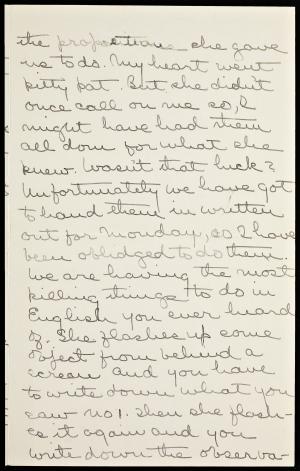 the propositions she gave
us to do. My heart went
pitty pat. But she didn't
once call on me so, I
might have had them
all dom for what she
knew. Wasn't that luck?
Unfortunately we have got
to hand them in written
out for Monday, so I have
been oblidged to do them.
We are having the most
killing things to do in
English you ever heard
of. She flashes up some
object from behind a
screan and you have
to write down what you
saw no 1. Then she flash-
es it again and you
write down the observa-